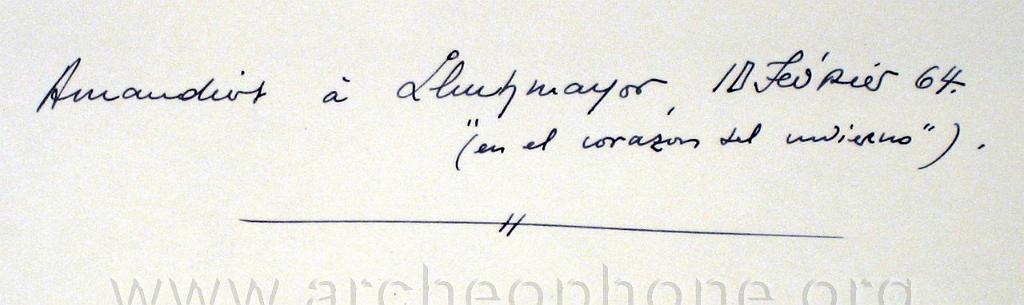 Amandiers à Lluchmayor, 18 Février 64.
("en el corazón del invierno").
www.archeophone.org